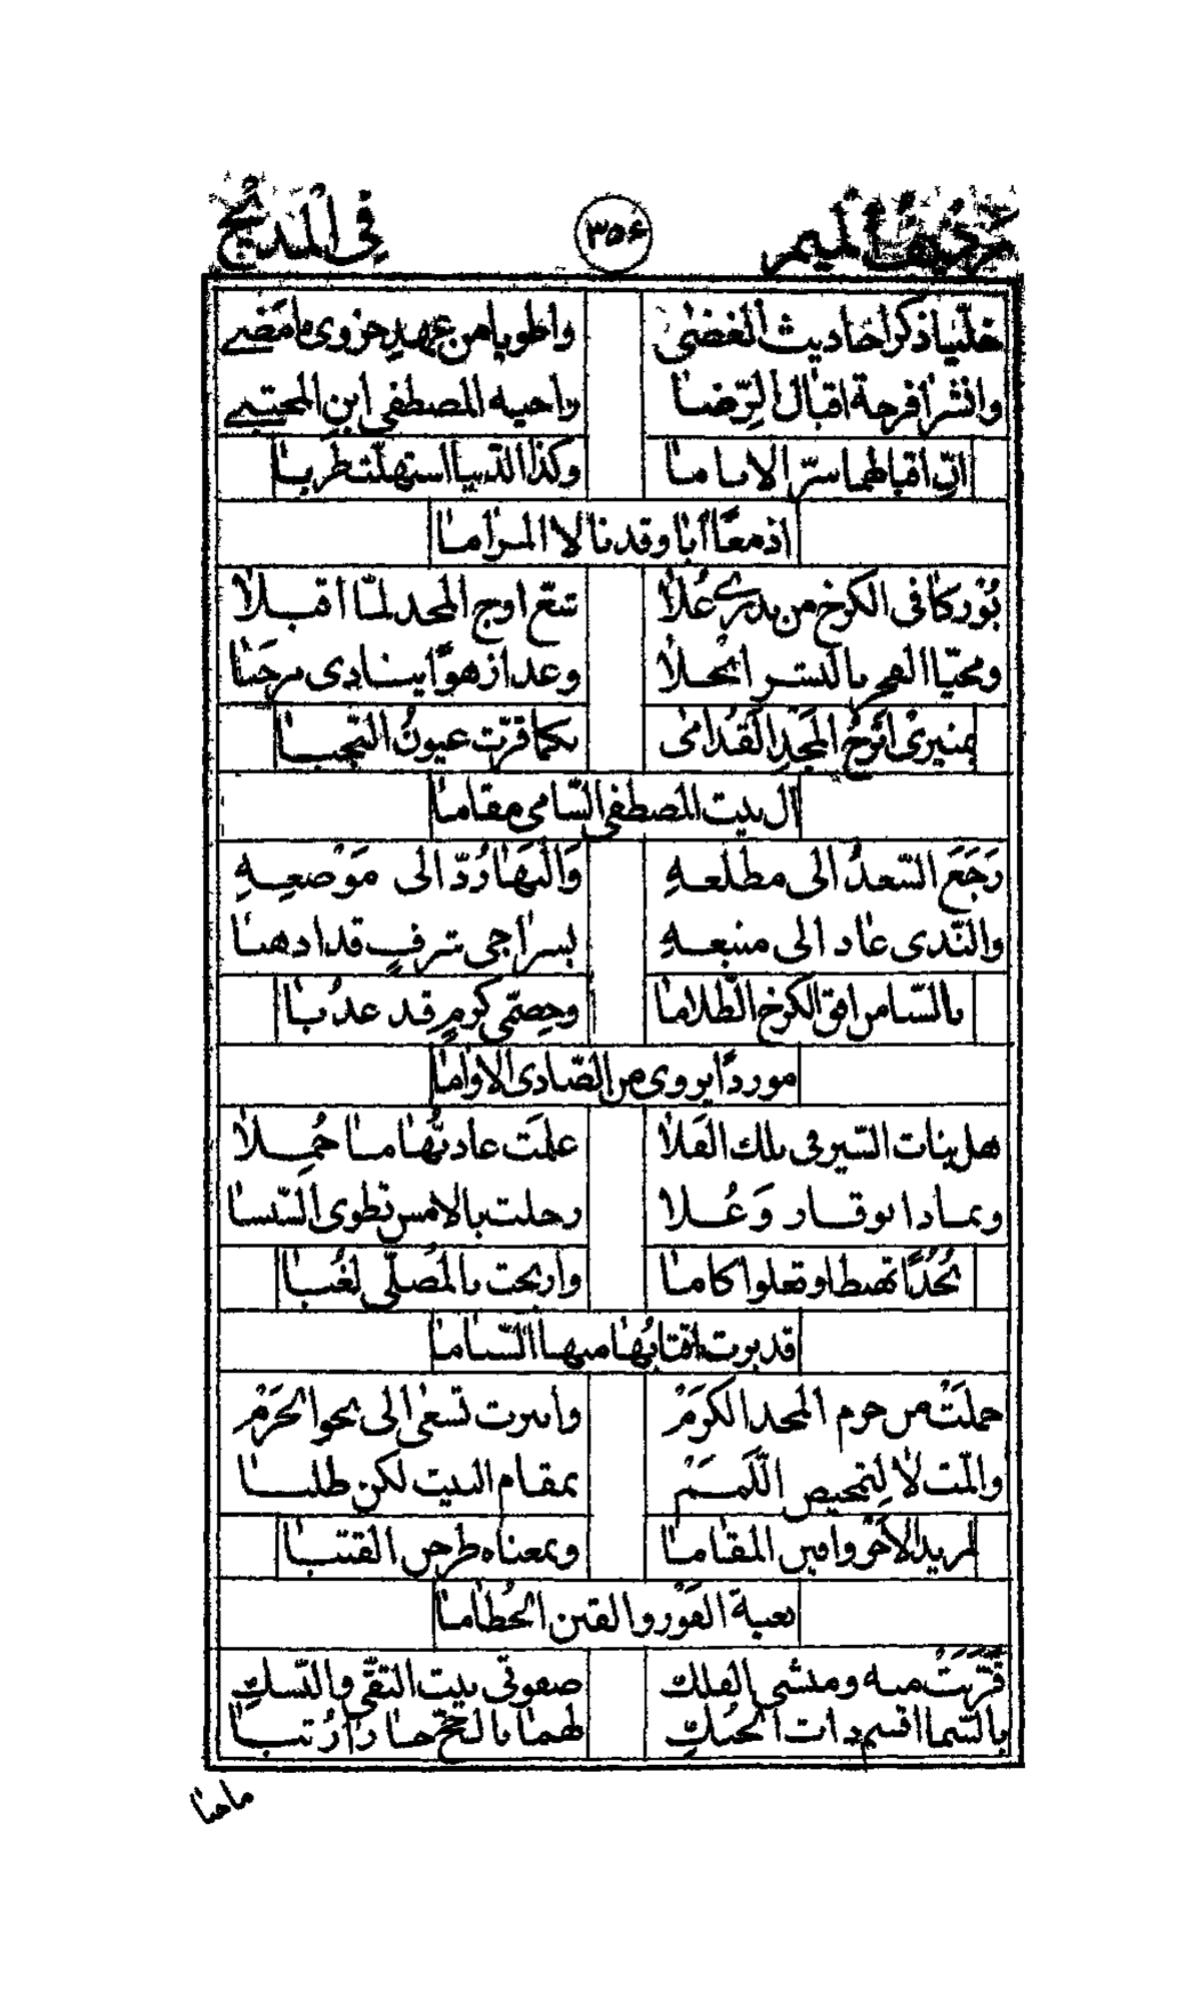 حرف الميم ٣٥٤ في المديح
خليا ذكر احاديث الغضى واطويا من عهد حزوى ما مضى
وانشرا فرحة اقبال الرضا واخيه المصطفى ابن المجتبى
ان اقبالهما سر الاناما وكذا الدنيا استهلت طربا
اذ معا آبا وقد نالا المراما
بوركا في الكرخ من بدري علا شع اوج المجد لما اقبلا
ومحيا الفجر بالبشر انجلا وغدا زهوا ينادي مرحبا
بمنيرى ابرج المجد القدامى بكما قرت عيون النجبا
ال بيت المصطفى السامي مقاما
رجع السعد الى مطلعه والبها رد الى موضعه
والندى عاد الى منبعه بسراجي شرف قد اذهبا
بالسنا من افق الكرخ الظلاما وخضمي كرم قد عذبا
موردا يروي من الصادي الاواما
هل بنات السير في تلك الفلا علمت عاديها ما حملا
وبماذا بوقار وعلا رحلت بالامس تطوي السبسبا
نجدا تهبط او تعلو اكاما واريحت بالمصلى لغبا
قد برت اقتابها منها السناما
حملت من حرم المجد الكرم وانبرت تسعى الى نحو الحرم
والمت لا لتمحيص اللمم بمقام البيت لكن طلبا
لمزيد الاجر وافين المقاما وبمعناه طرحن القتبا
بغية الفوز والقين الحطاما
قربت منه ومنشي الفلك صفوتي بيت التقى والنسك
بالسما اقسم ذات الحبك لهما بالحج حازا رتبا
ما حبا